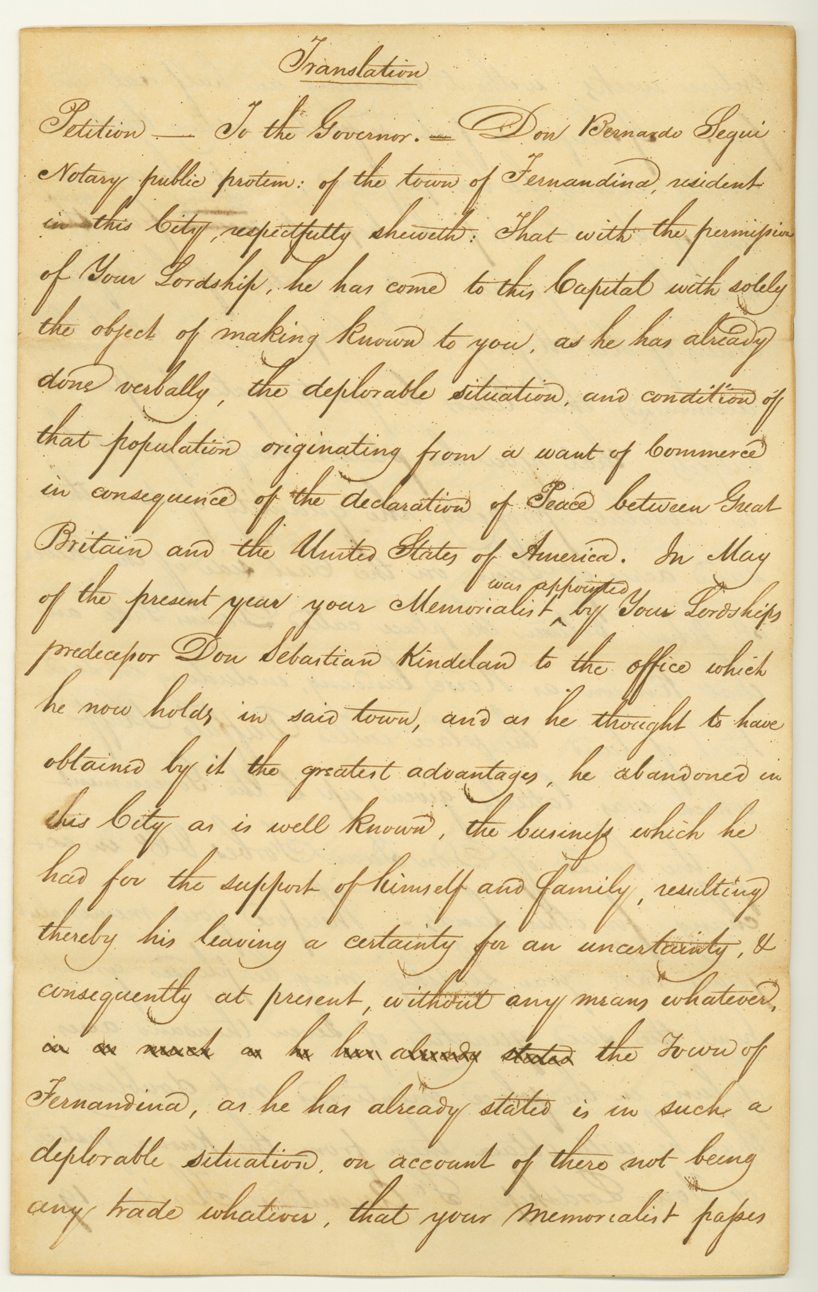 Translation
Petition — To the Governor. = Don Bernardo Segui
Notary public protem: of the town of Fernandina, resident
in this City, respectfully sheweth: That with the permission
of Your Lordship, he has come to this Capital with solely
the object of making known to you, as he has already
done verbally, the deplorable situation, and condition of
that population originating from a want of Commerce
in consequence of the declaration of Peace between Great
Britain and the United States of America. In May
was appointed
of the present year your Memorialist ^ by Your Lordships
predecessor Don Sebastian Kindelan to the office which
he now holds, in said town, and as he thought to have
obtained by it the greatest advantages, he abandoned in
this City as is well known, the business which he
had for the support of himself and family, resulting
thereby his leaving a certainty for an uncertainty, &
consequently at present, without any means whatever,
in as much as he has already stated the Town of
Fernandina, as he has already stated is in such a
deplorable situation, on account of there not being
any trade whatever, that your Memorialist passes